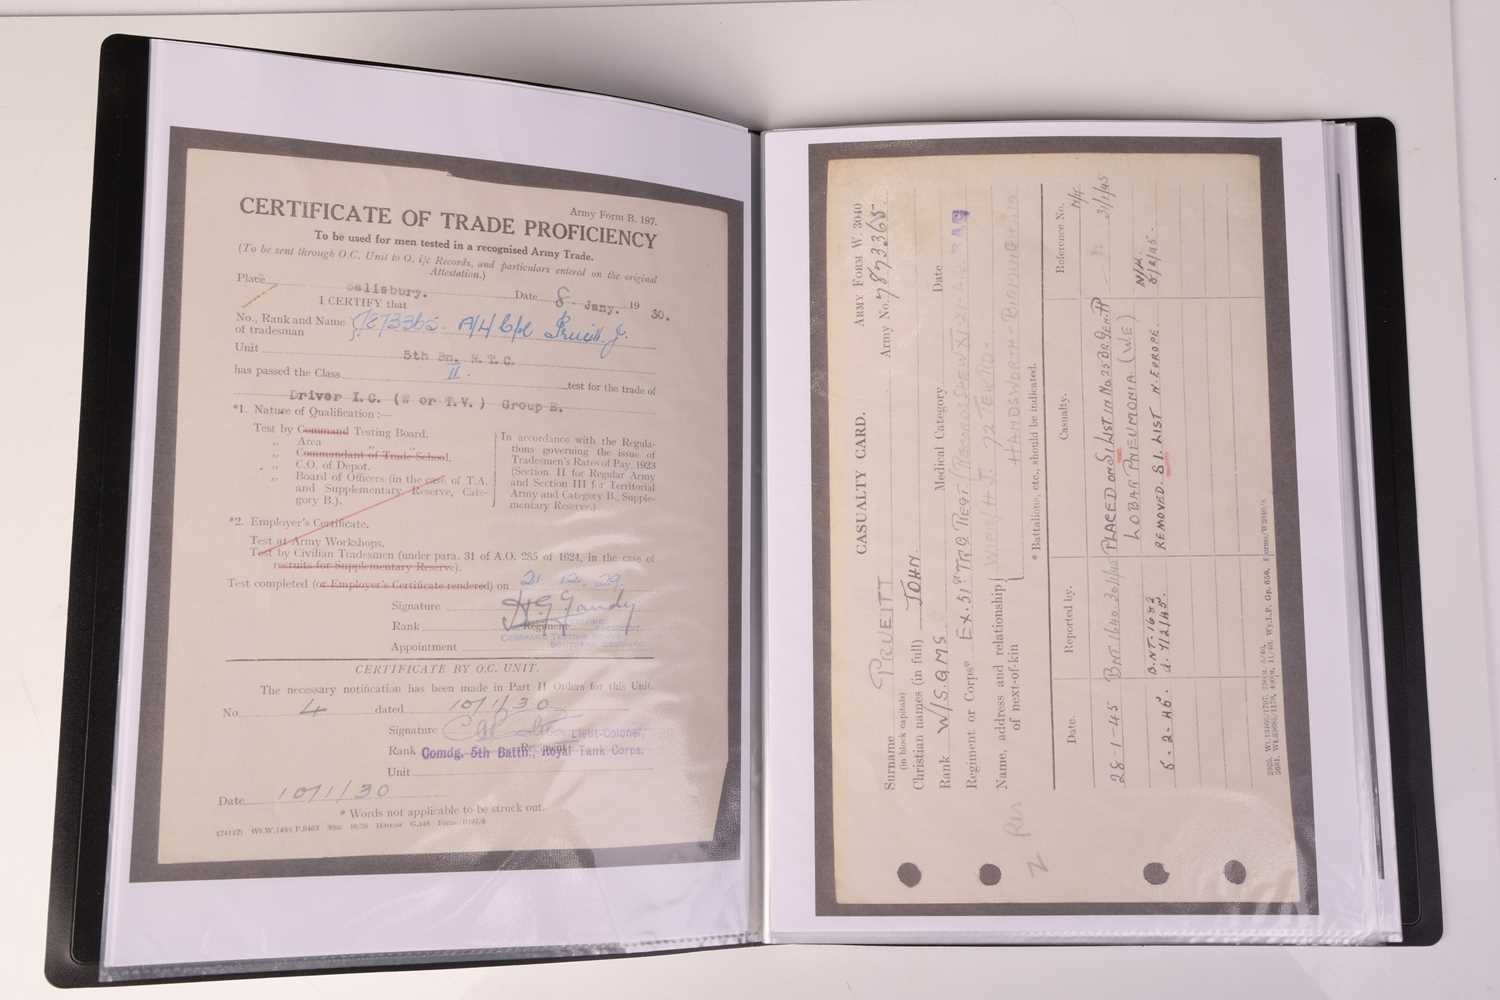 Army Form B. 197.
CERTIFICATE OF TRADE PROFICIENCY
To be used for men tested in a recognised Army Trade.
(To be sent through O.C. Unit to O. i/c Records, and particulars entered on the original
Attestation.)
Place Salisbury. Date 8 Jany. 19 30.
I CERTIFY that
No., Rank and Name 7873365 A/4 Cpl Prueitt J.
of tradesman
Unit 5th Bn. R.T.C.
has passed the Class II. test for the trade of
Driver I.C. (W or T.V.) Group E.
*1. Nature of Qualification:—
Test by Command Testing Board.
„ Area „
„ Commandant of Trade School.
„ C.O. of Depot.
„ Board of Officers (in the case of T.A.
and Supplementary Reserve, Cate-
gory B.).
In accordance with the Regula-
tions governing the issue of
Tradesmen's Rates of Pay, 1923
(Section II for Regular Army
and Section III for Territorial
Army and Category B., Supple-
mentary Reserve.)
*2. Employer's Certificate.
Test at Army Workshops.
Test by Civilian Tradesmen (under para. 31 of A.O. 285 of 1624, in the case of
recruits for Supplementary Reserve).
Test completed (or Employer's Certificate rendered) on 21.12.29.
Signature H.G. Gandy
Rank Regiment
Appointment
CERTIFICATE BY O.C. UNIT.
The necessary notification has been made in Part II Orders for this Unit.
No. 4 dated 10/1/30
Signature Lieut-Colonel,
Rank Comdg. 5th Battn., Royal Tank Corps.
Unit
Date 10/1/30
* Words not applicable to be struck out.
CASUALTY CARD.
ARMY FORM W. 3040
Surname PRUEITT Army No. 7873365.
(in block capitals)
Christian names (in full) JOHN.
Rank W/S.Q.M.S Medical Category Date
Regiment or Corps* Ex. 51st TRG REGT
Name, address and relationship
of next-of-kin
HANDSWORTH - BIRMINGHAM
* Battalions, etc., should be indicated.
Date. Reported by. Casualty. Reference No.
28-1-45 PLACED ON SI LIST IN No. 25 BR. GEN. HP 3/2/45
LOBAR PNEUMONIA (W E)
5.2.45. REMOVED. SI. LIST N. EUROPE. 8/2/45.